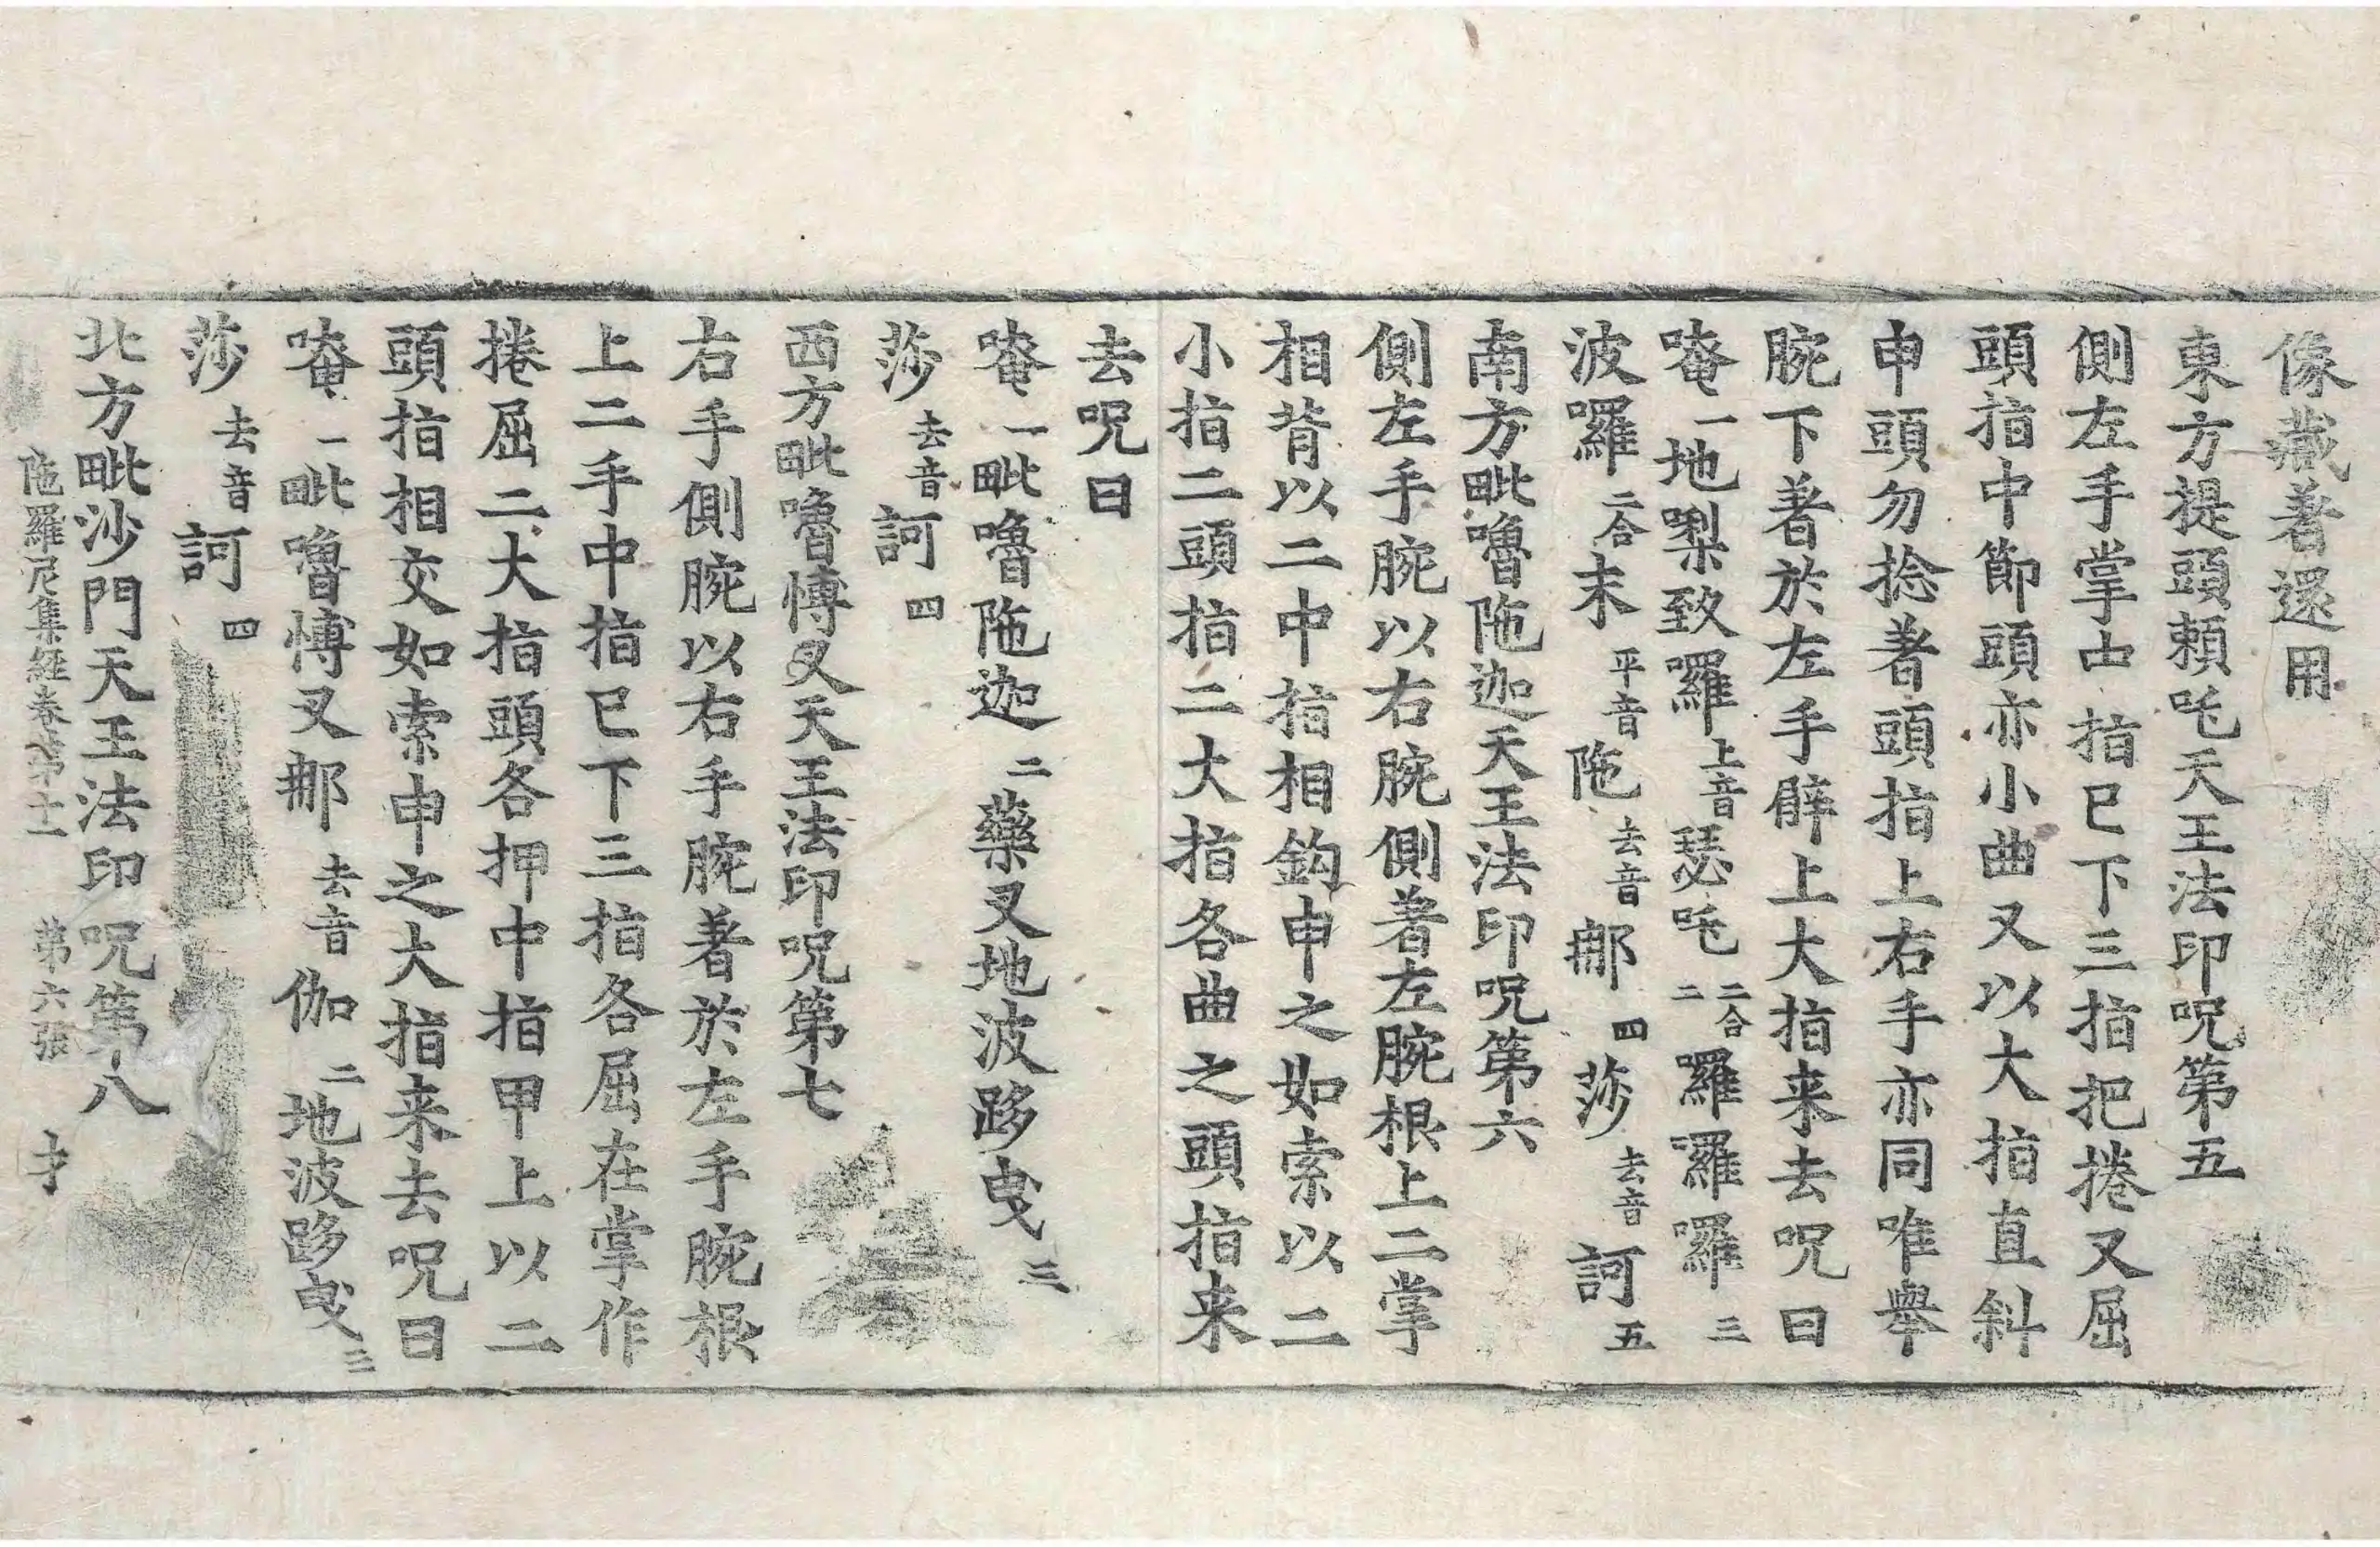 像藏著還用
東方提頭頼吒天王法印呪第五
側左手掌中指已下三指把捲又屈
頭指中節頭亦小曲又以大指直斜
申頭勿捻著頭指上右手亦同唯舉
腕下著於左手臂上大指来去呪曰
唵一地㗚致囉上音瑟吒二合二囉囉囉囉三
波囉二合末平音陁去音那四莎去音訶五
南方毗嚕陁迦天王法印呪第六
側左手腕以右腕側著左腕根上二掌
相背以二中指相鈎申之如索以二
小指二頭指二大指各曲之頭指来
去呪曰
唵一毗嚕陁迦二藥叉地波跢曳三
莎去音訶四
西方毗嚕博叉天王法印呪第七
右手側腕以右手腕著於左手腕根
上二手中指已下三指各屈在掌作
捲屈二大指頭各押中指甲上以二
頭指相交如索申之大指来去呪曰
唵一毗嚕博叉那去音伽二地波跢曳三
莎去音訶四
北方毗沙門天王法印呪第八
陁羅尼集経卷第十一 第六張 才